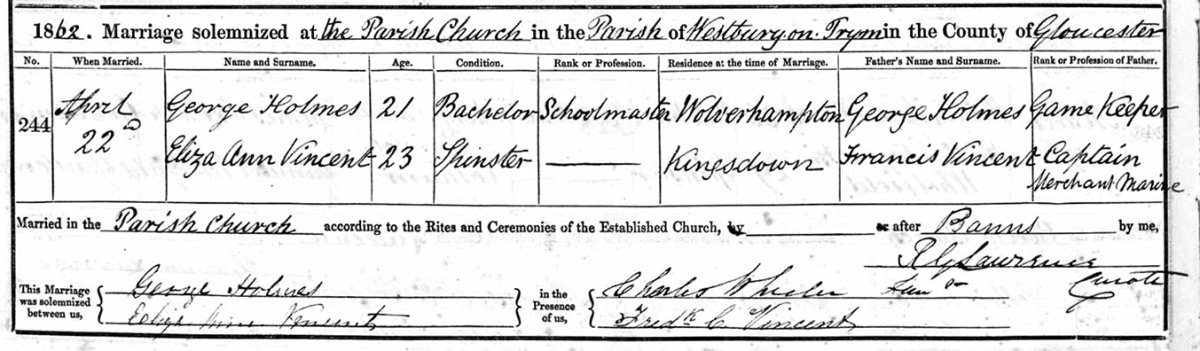 1862. Marriage solemnized at the Parish Church in the Parish of Westbury on Trym in the County of Gloucester
No. When Married. Name and Surname. Age. Condition. Rank or Profession. Residence at the time of Marriage. Father's Name and Surname. Rank or Profession of Father.
244 April 22d George Holmes 21 Bachelor Schoolmaster Wolverhampton George Holmes Game Keeper
Eliza Ann Vincent 23 Spinster Kingsdown Francis Vincent Captain
Merchant Marine
Married in the Parish Church according to the Rites and Ceremonies of the Established Church, by or after Banns by me,
Lawrence
Curate
This Marriage was solemnized between us, George Holmes in the Presence of us, Charles Wheeler
Eliza Ann Vincent Fredk C Vincent